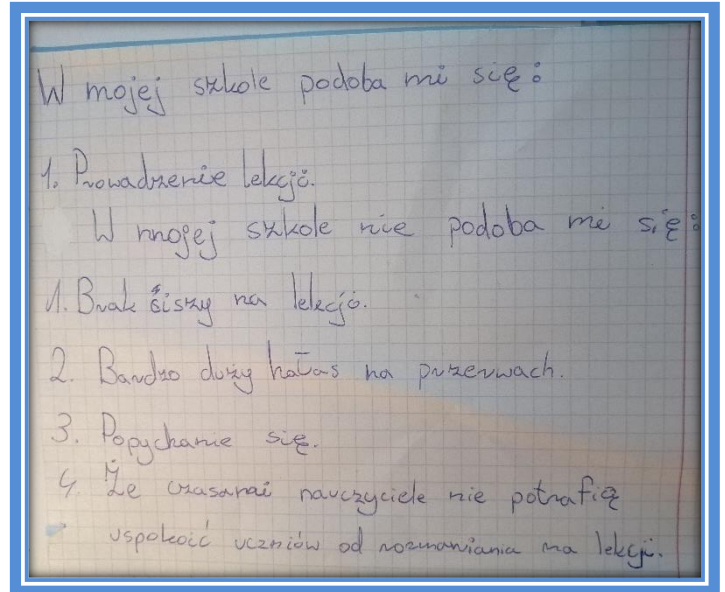 W mojej szkole podoba mi się:
1. Prowadzenie lekcji.
W mojej szkole nie podoba mi się:
1. Brak ciszy na lekcji.
2. Bardzo duży hałas na przerwach.
3. Popychanie się.
4. Że czasami nauczyciele nie potrafią
uspokoić uczniów od rozmawiania na lekcji.